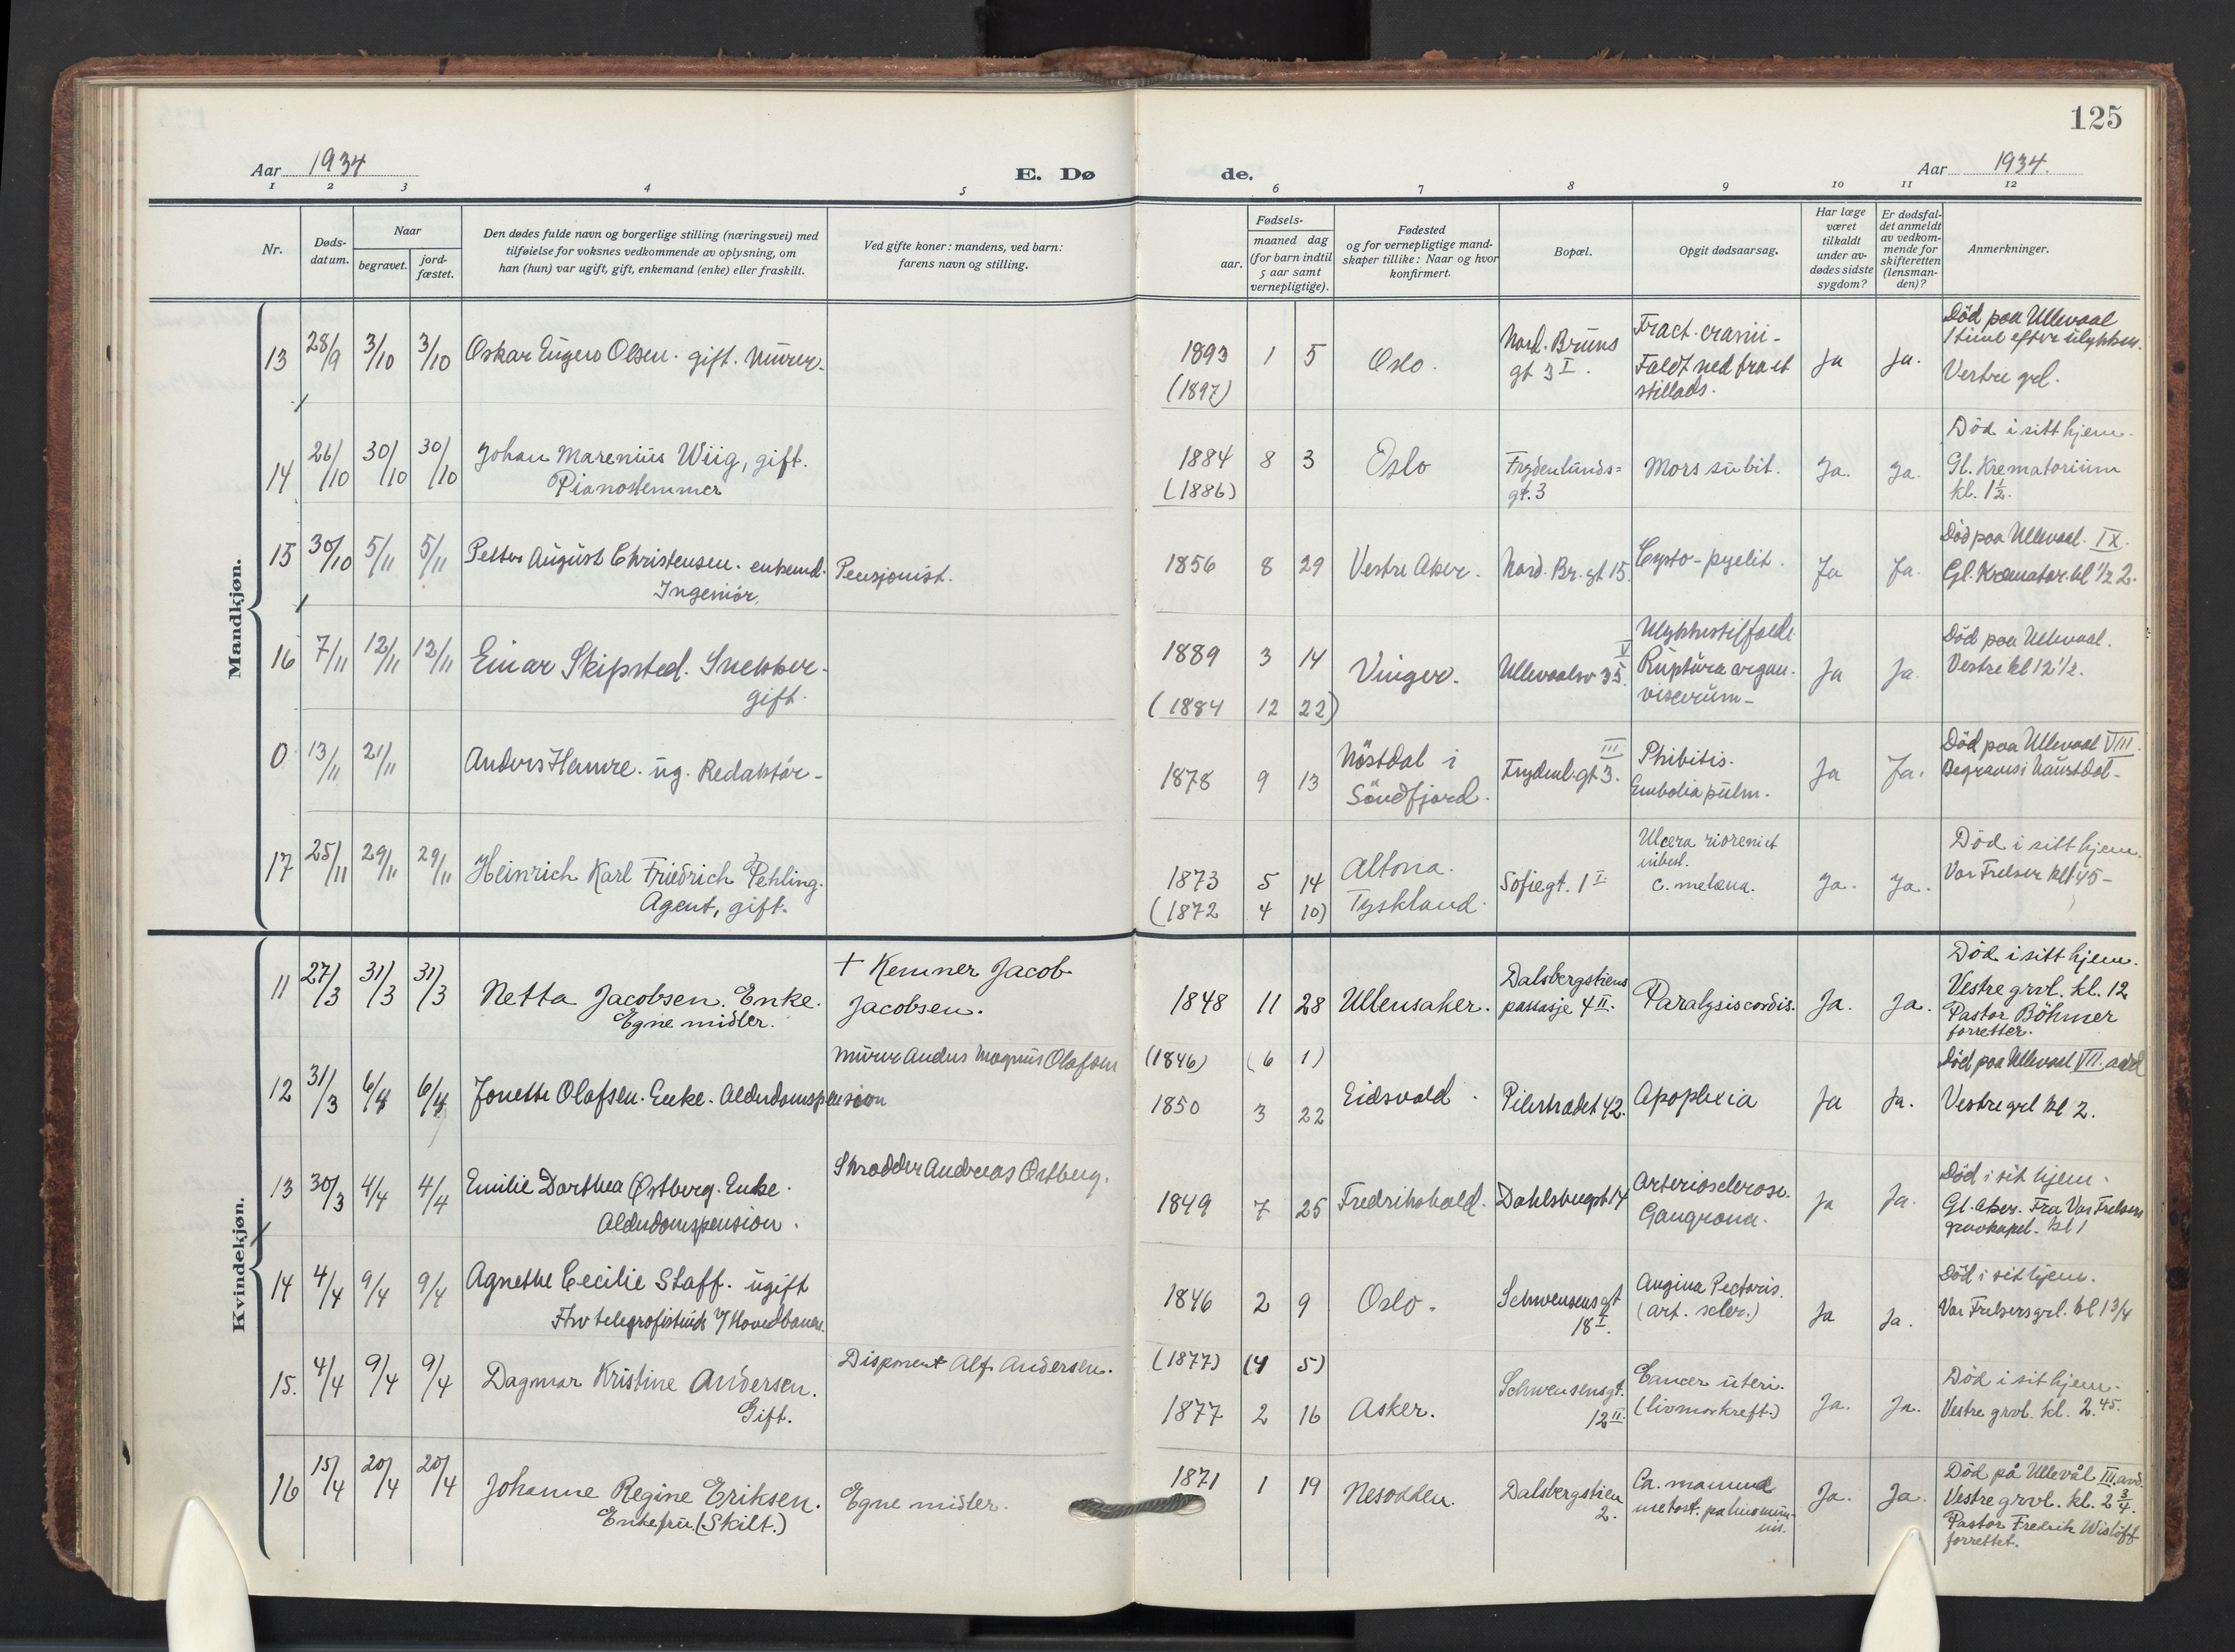 125
Aar 1934
E. Dø
de.
Aar 1934.
1 2 3 4 5 6 7 8 9 10 11 12
Nr.
Døds-
datum.
Naar
begravet.
jord-
fæstet.
Den dødes fulde navn og borgerlige stilling (næringsvei) med
tilføielse for voksnes vedkommende av oplysning, om
han (hun) var ugift, gift, enkemand (enke) eller fraskilt.
Ved gifte koner: mandens, ved barn:
farens navn og stilling.
Fødsels-
aar.
maaned dag
(for barn indtil
5 aar samt
vernepligtige).
Fødested
og for vernepligtige mand-
skaper tillike: Naar og hvor
konfirmert.
Bopæl.
Opgit dødsaarsag.
Har læge
været
tilkaldt
under av-
dødes sidste
sygdom?
Er dødsfal-
det anmeldt
av vedkom-
mende for
skifteretten
(lensman-
den)?
Anmerkninger.
Mandkjøn.
13 28/9 3/10 3/10 Oskar Eugen Olsen. gift. Murer.
1893 1 5
(1897)
Oslo.
Nord. Bruns
gt 3 I.
Fract. cranii -
Faldt ned fra et
stillads.
Ja Ja.
Død paa Ullevaal
1 time efter ulykken.
Vestre grl.
14 26/10 30/10 30/10 Johan Marenius Wiig, gift.
Pianostemmer
1884 8 3
(1886)
Oslo
Frydenlunds=
gt. 3
Mors subit.
Ja. Ja.
Død i sitt hjem.
Gl. Krematorium
kl. 1½.
15 30/10 5/11 5/11 Petter August Christensen. enkemd.
Ingeniør.
Pensjonist.
1856 8 29
Vestre Aker.
Nord. Br. gt 15.
Cysto-pyelit.
Ja Ja.
Død paa Ullevaal. IX.
Gl. Kremator. kl ½ 2.
16 7/11 12/11 12/11 Einar Skipsted. Snekker.
gift.
1889 3 14
(1884 12 22)
Vinger.
Ullevaalsv 35 V.
Ulykkestilfælde
Ruptura organ.
viscerum -
Ja Ja.
Død paa Ullevaal.
Vestre kl 12 ½.
0 13/11 21/11 Anders Hamre. ug. Redaktør -
1878 9 13
Nöstdal i
Söndfjord.
Frydenl. gt 3. III
Phlibitis.
Embolia pulm.
Ja Ja.
Død paa Ullevaal VIII.
Begraves i Naustdal -
17 25/11 29/11 29/11 Heinrich Karl Friedrich Pehling.
Agent, gift.
1873 5 14
(1872 4 10)
Altona.
Tyskland.
Sofiegt. 1 I
Ulcera
c. melæna.
Ja. Ja.
Død i sitt hjem.
Vor Frelser
Kvindekjøn.
11 27/3 31/3 31/3 Netta Jacobsen. Enke.
Egne midler.
+ Kemner Jacob
Jacobsen.
1848 11 28
Ullensaker.
Dalsbergstiens
passasje 4 II.
Paralysis cordis.
Ja. Ja.
Død i sitt hjem.
Vestre grvl. kl. 12
Pastor Böhmer
forretter.
12 31/3 6/4 6/4 Jonette Olafsen. Enke. Alderdomspension
Murer Anders Magnus Olafsen
(1846) (6 1)
1850 3 22
Eidsvold.
Pilestrædet 42.
Apoplexia
Ja Ja.
Død paa Ullevaal VII. avd
Vestre grl kl 2.
13 30/3 4/4 4/4 Emilie Dorthea Østberg. Enke.
Alderdomspension.
Skrædder Andreas Østberg.
1849 7 25
Fredrikshald.
Dahlsbergst 14
Arteriosclerose.
Gangræna.
Ja Ja.
Død i sit hjem.
Gl. Aker. Fra Vor Frelsers
gravkapel. kl 1
14 4/4 9/4 9/4 Agnethe Cecilie Staff. ugift
Fhv telegrafistinde v/ Hovedbanen.
1846 2 9
Oslo.
Schwensensgt
18 I.
Angina Pectoris.
(art. scler.)
Ja Ja.
Død i sit hjem.
Vor Frelsers grl. kl 1 3/4
15. 4/4 9/4 9/4 Dagmar Kristine Andersen.
Gift.
Disponent Alf. Andersen.
(1877) (4 5)
1877 2 16
Asker.
Schwensensgt.
12 II.
Cancer uteri.
(livmorkreft.)
Ja. Ja.
Død i sit hjem.
Vestre grvl. kl. 2.45.
16 15/4 20/4 20/4 Johanne Regine Eriksen.
Enkefru. (Skilt.)
Egne midler.
1871 1 19
Nesodden.
Dalsbergstien
2.
Ca. mamma
metast.
Ja. Ja.
Død på Ullevål III. avd.
Vestre grvl. kl. 2 3/4.
Pastor Fredrik Wisløff
forrettet.